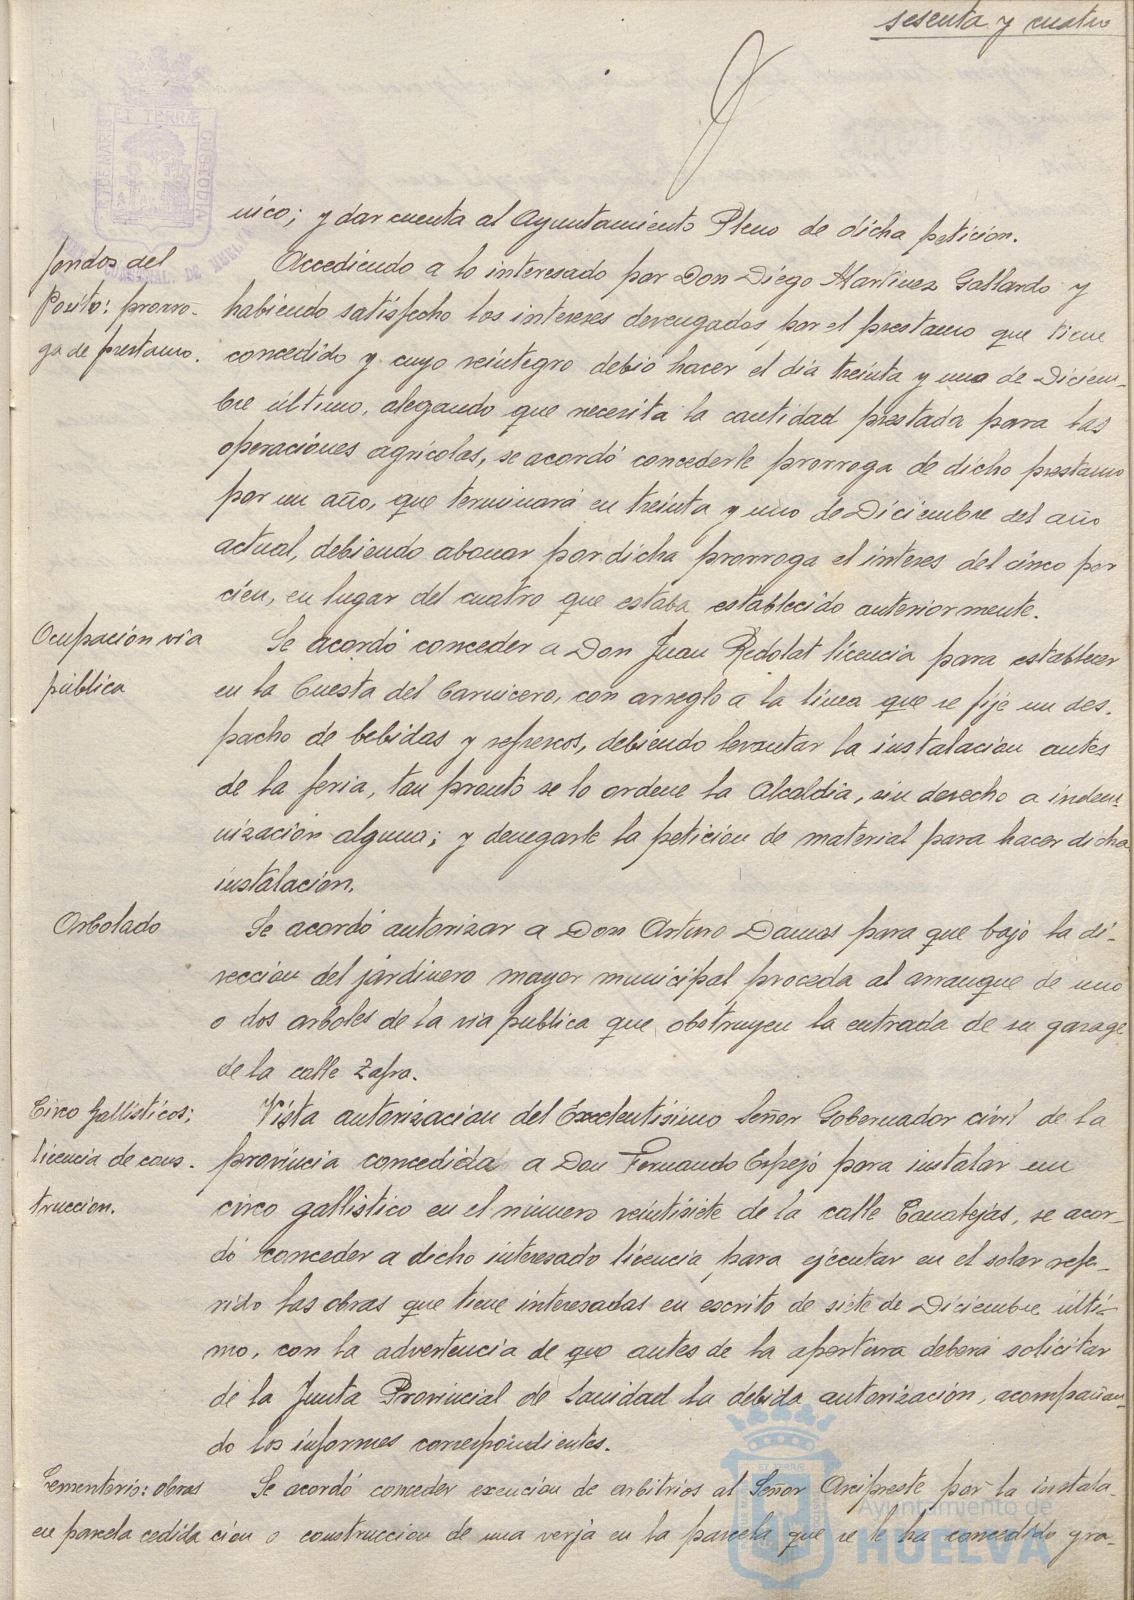 sesenta y cuatro
ET TERRÆ
CUSTODIA
nico; y dar cuenta al Ayuntamiento Pleno de dicha petición.
fondos del
Posito: prorro-
ga de prestamo.
Accediendo a lo interesado por Don Diego Martinez Gallardo y
habiendo satisfecho los intereses devengados, por el prestamo que tiene
concedido y cuyo reintegro debió hacer el día treinta y uno de Diciem-
bre último, alegando que necesita la cantidad prestada para las
operaciones agricolas, se acordó concederle prorroga de dicho prestamo
por un año, que terminará en treinta y uno de Diciembre del año
actual, debiendo abonar por dicha prorroga el interes del cinco por
cien, en lugar del cuatro que estaba establecido anteriormente.
Ocupación via
pública
Se acordó conceder a Don Juan Redolat licencia para establecer
en la Cuesta del Carnicero, con arreglo a la línea que se fije un des-
pacho de bebidas y refrescos, debiendo levantar la instalación antes
de la feria, tan pronto se lo ordene la Alcaldia, sin derecho a indem-
nización alguna; y denegarle la petición de material para hacer dicha
instalación.
Arbolado
Se acordó autorizar a Don Arturo Damas para que bajo la di-
reccion del jardinero mayor municipal proceda al arranque de uno
o dos arboles de la via publica que obstruyen la entrada de su garage
de la calle Zafra.
Circo Gallisticos:
licencia de cons-
truccion.
Vista autorizacion del Excelentisimo Señor Gobernador civil de la
provincia concedida a Don Fernando Espejo para instalar un
circo gallistico en el número veintisiete de la calle Canalejas, se acor-
dó conceder a dicho interesado licencia para ejecutar en el solar refe-
rido las obras que tiene interesadas en escrito de siete de Diciembre últi-
mo, con la advertencia de que antes de la apertura deberá solicitar
de la Junta Provincial de Sanidad la debida autorización, acompañan-
do los informes correspondientes.
Cementerio: obras
en parcela cedida
Se acordó conceder exencion de arbitrios al Señor Arcipreste por la instala-
cion o construccion de una verja en la parcela que se le ha concedido gra-
Ayuntamiento de
HUELVA